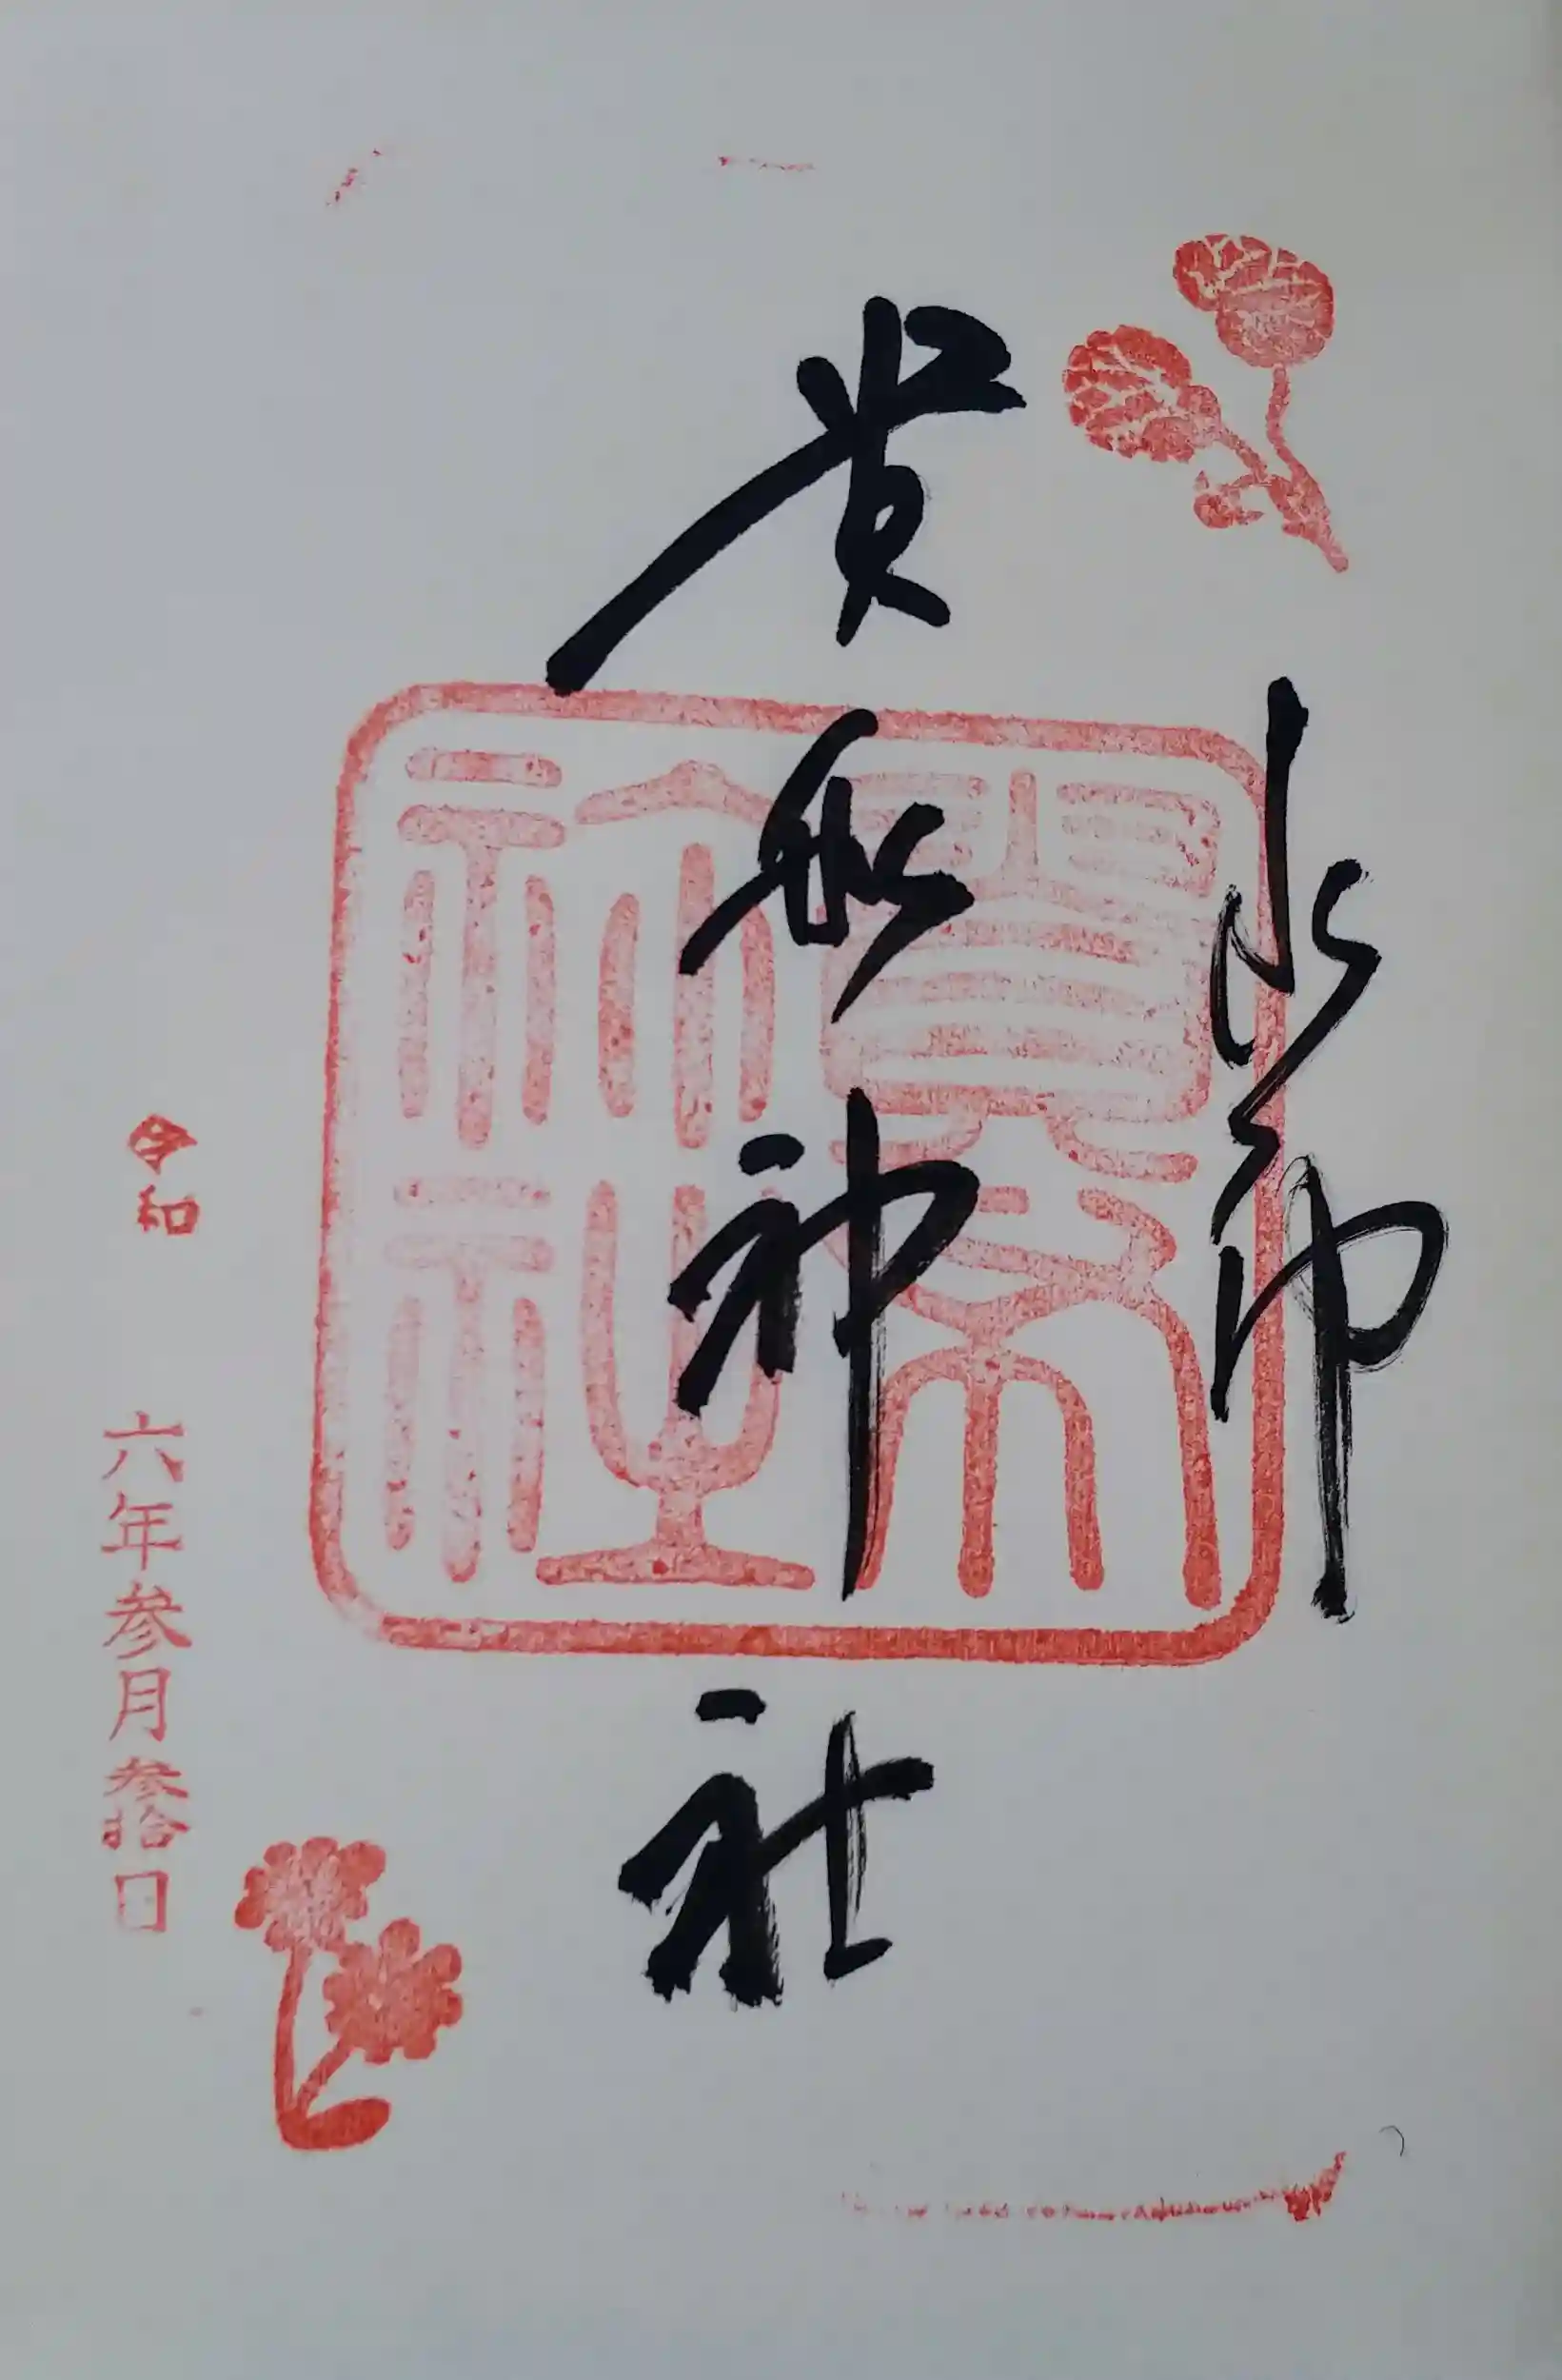 水神
貴船神社
貴布
祢社
令和 六年参月参拾日